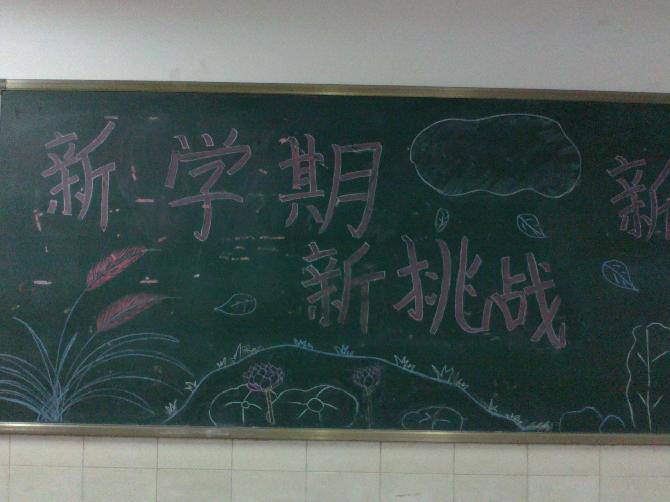 新学期
新挑战
新